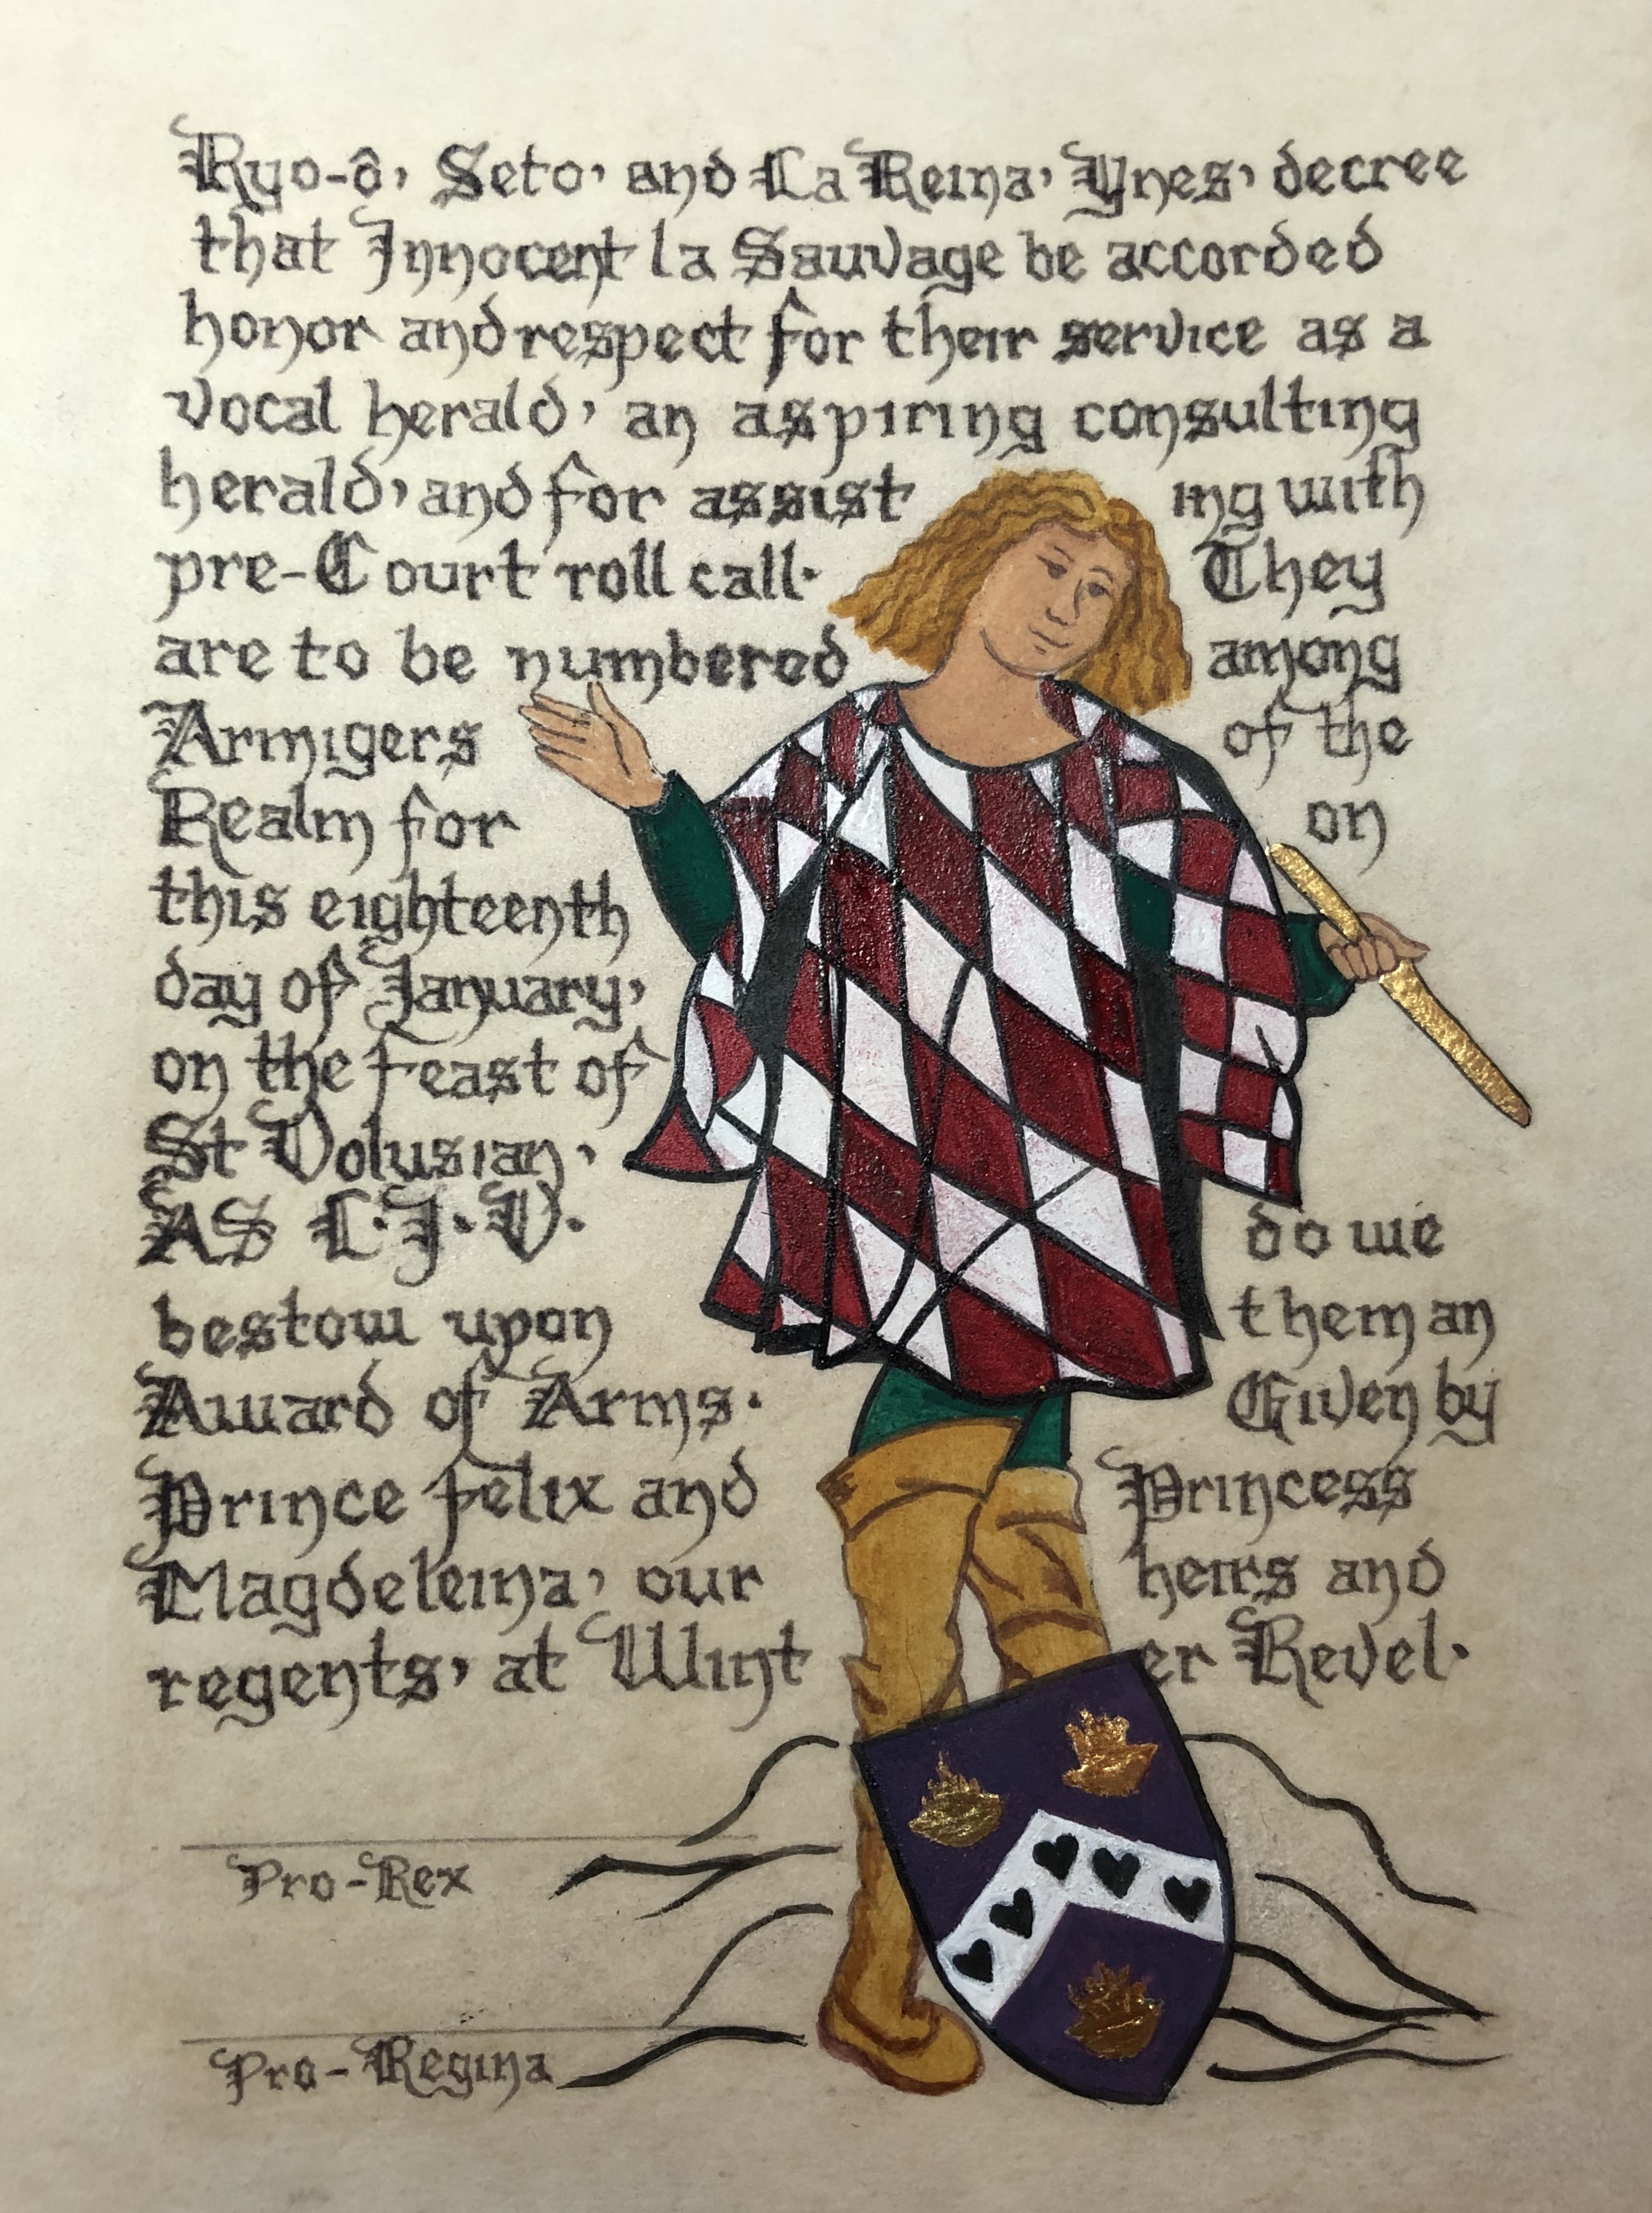 Ryo-ô, Seto, and La Reina, Ynes, decree
that Innocent la Sauvage be accorded
honor and respect for their service as a
vocal herald, an aspiring consulting
herald, and for assist ing with
pre-Court roll call. They
are to be numbered among
Armigers of the
Realm for on
this eighteenth
day of January,
on the feast of
St Volusian,
AS L.I.V. do we
bestow upon them an
Award of Arms. Given by
Prince Felix and Princess
Magdeleina, our heirs and
regents, at Wint er Revel.
Pro-Rex
Pro-Regina